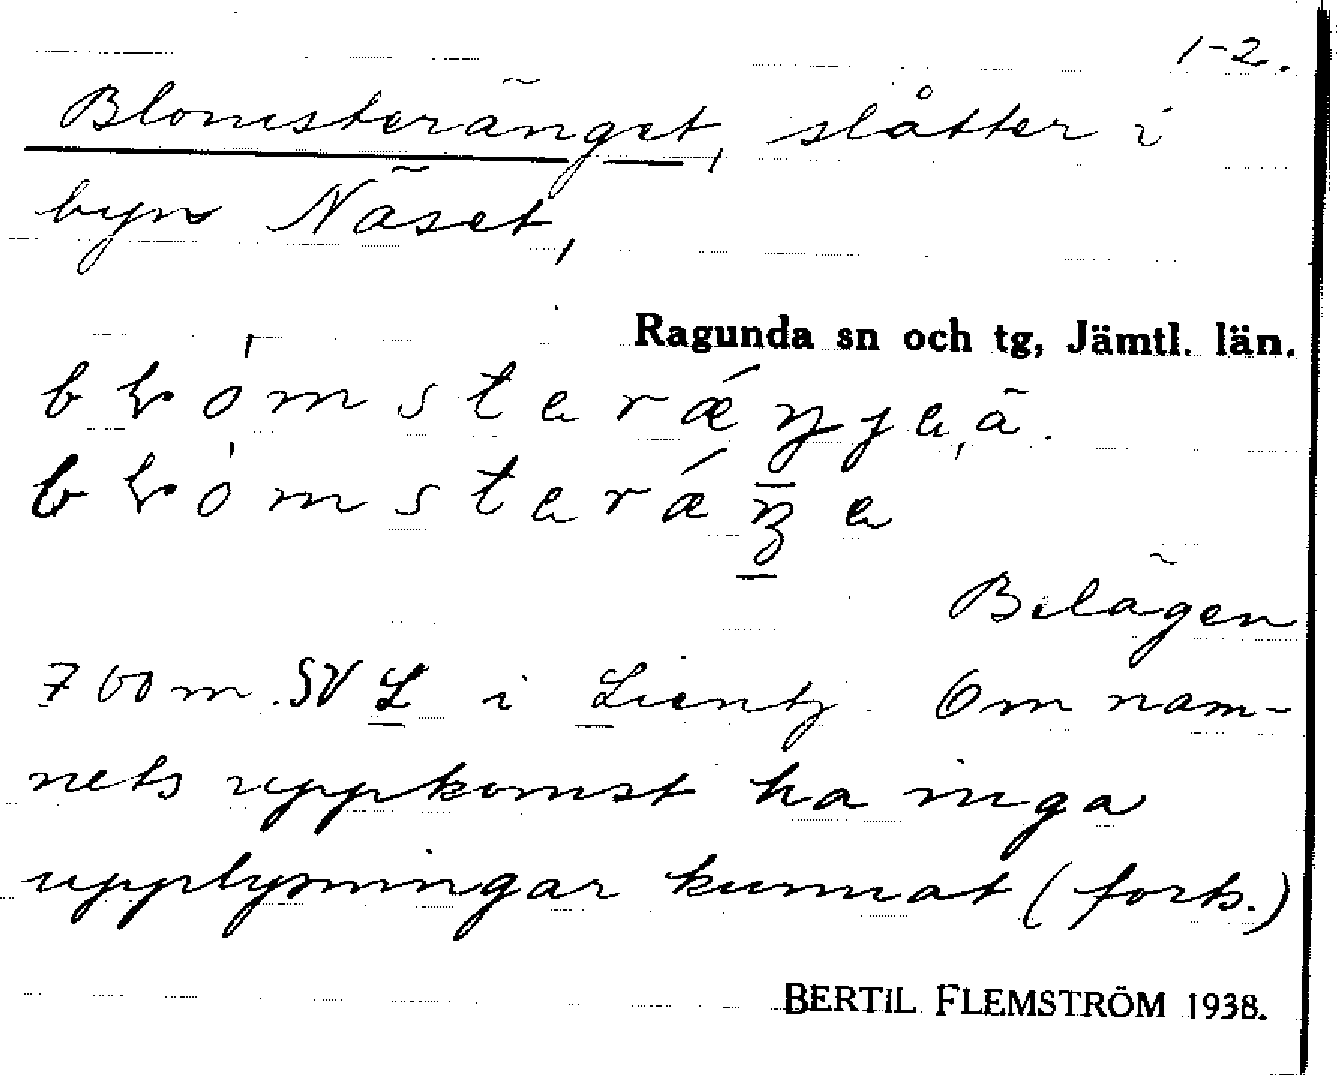 1-2.
Blomsteränget, slåtter i
byn Näset,
Ragunda sn och tg, Jämtl. län.
Belägen
700 m. SV L i Lientj. Om nam-
nets uppkomst ha inga
upplysningar kunnat (forts.)
BERTIL FLEMSTRÖM 1938.